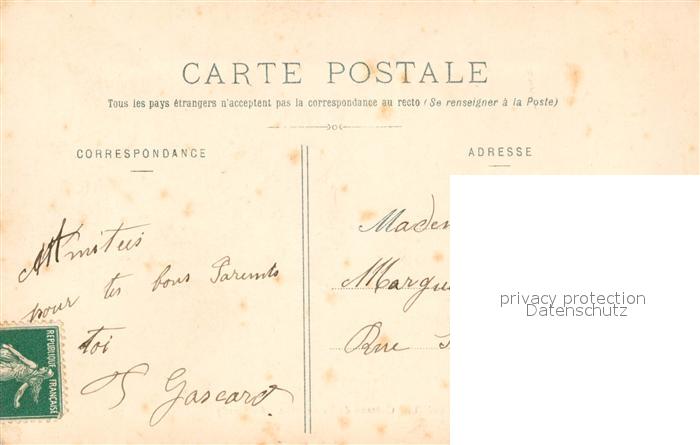 CARTE POSTALE
Tous les pays étrangers n'acceptent pas la correspondance au recto (Se renseigner à la Poste)
CORRESPONDANCE
ADRESSE
Amitiés
pour tes bons Parents
toi
Gascard
Madem
Margue
Rue
privacy protection
Datenschutz
REPUBLIQUE FRANÇAISE